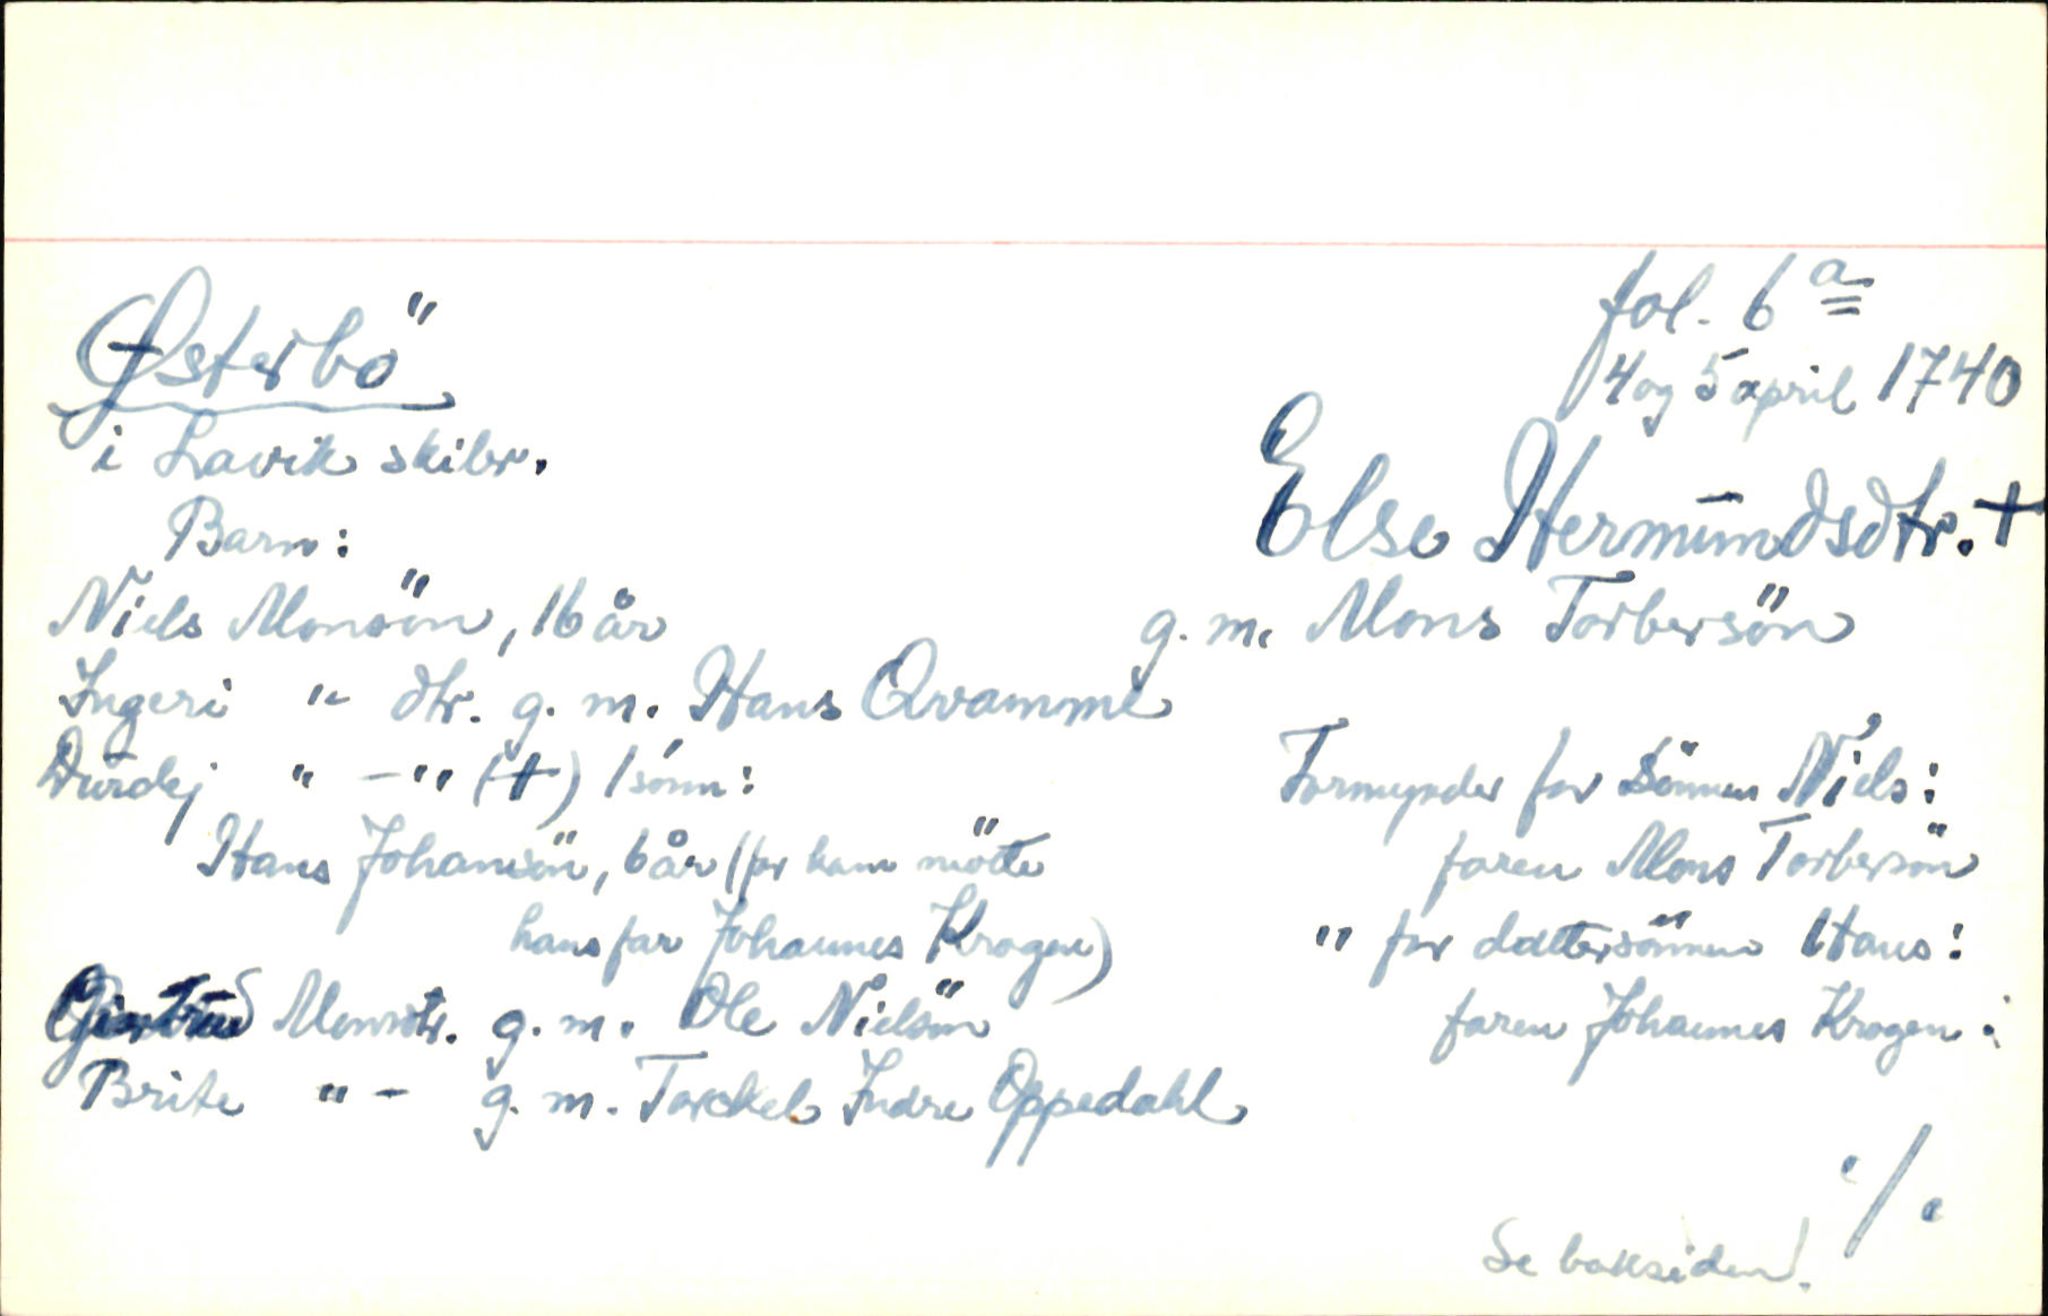 fol. 6 a
Østerbö
4 og 5 april 1740
i Lavik skibr.
Else Hermundsdtr. +
Barn:
Niels Monsön, 16 år
g. m. Mons Torbersön
Ingeri " dtr. g. m. Hans Qvamme
Durdej " - " (+) 1 sönn:
Formynder for sönnen Niels:
Hans Johansön, 6 år (for ham mötte
faren Mons Torbersön
hans far Johannes Krogen)
" for dattersönnen Hans:
Giertrud Monsdtr. g. m. Ole Nielsön
faren Johannes Krogen.
Brite " - g. m. Torckel Indre Oppedahl
./.
Se baksiden!